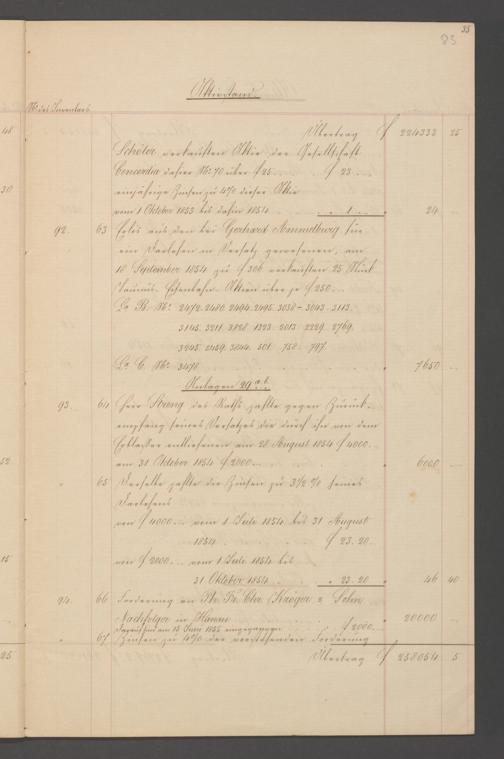 35
83
Aktivstand
No des Inventars.
Übertrag f 224332 25
Schöler, verkauften Aktie der Gesellschaft
Concordia dahier No 70 über f 25 f 23
einjährige Zinsen zu 4% dieser Aktie
vom 1 Oktober 1853 bis dahin 1854 " 1 " 24
92. 63 Erlös aus den bei Gerhard Ammelburg für
ein Darlehen in Versatz gewesenen, am
18 September 1854 zu f 306 verkauften 25 Stück
Taunus Eisenbahn Aktien über je f 250
La B. No 2472. 2480. 2494. 2495. 3038 - 3043. 3113.
3145. 3211. 3828. 1323. 2013. 2229. 2769.
3245. 2459. 3044. 501. 758. 797.
La C. No 3478 " 7650
Anlagen 29 a. b.
93. 64 Herr Streng des Raths zahlte gegen Zurück-
empfang seines Versatzes die durch ihn von dem
Erblasser entliehenen am 28 August 1854 f 4000
am 31 Oktober 1854 f 2000 " 6000
" 65 Derselbe zahlte die Zinsen zu 3 1/2 % seines
Darlehens
von f 4000 vom 1 Julii 1854 bis 31 August
1854 f 23. 20
von f 2000 vom 1 Julii 1854 bis
31 Oktober 1854 " 23. 20 " 46 40
94. 66 Forderung an Pr. Fr. Chr. Kröger & Sohn
Nachfolger in Hanau " 20000
Darauf sind am 15 Juni 1855 eingegangen f 2000
" 67 Zinsen zu 4% der vorstehenden Forderung
Übertrag f 238054 5